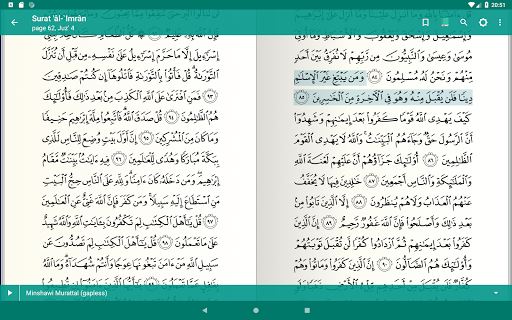 20:51
Surat 'āl-`Imrān
page 62, Juz' 4
مُوسَىٰ وَعِيسَىٰ وَٱلنَّبِيُّونَ مِن رَّبِّهِمْ لَا نُفَرِّقُ بَيْنَ أَحَدٍ
مِّنْهُمْ وَنَحْنُ لَهُۥ مُسْلِمُونَ ٨٤ وَمَن يَبْتَغِ غَيْرَ ٱلْإِسْلَٰمِ
دِينًا فَلَن يُقْبَلَ مِنْهُ وَهُوَ فِى ٱلْءَاخِرَةِ مِنَ ٱلْخَٰسِرِينَ ٨٥
كَيْفَ يَهْدِى ٱللَّهُ قَوْمًا كَفَرُوا۟ بَعْدَ إِيمَٰنِهِمْ وَشَهِدُوٓا۟
أَنَّ ٱلرَّسُولَ حَقٌّ وَجَآءَهُمُ ٱلْبَيِّنَٰتُ وَٱللَّهُ لَا يَهْدِى ٱلْقَوْمَ
ٱلظَّٰلِمِينَ ٨٦ أُو۟لَٰٓئِكَ جَزَآؤُهُمْ أَنَّ عَلَيْهِمْ لَعْنَةَ ٱللَّهِ
وَٱلْمَلَٰٓئِكَةِ وَٱلنَّاسِ أَجْمَعِينَ ٨٧ خَٰلِدِينَ فِيهَا لَا يُخَفَّفُ
عَنْهُمُ ٱلْعَذَابُ وَلَا هُمْ يُنظَرُونَ ٨٨ إِلَّا ٱلَّذِينَ تَابُوا۟ مِنۢ
بَعْدِ ذَٰلِكَ وَأَصْلَحُوا۟ فَإِنَّ ٱللَّهَ غَفُورٌ رَّحِيمٌ ٨٩ إِنَّ ٱلَّذِينَ
كَفَرُوا۟ بَعْدَ إِيمَٰنِهِمْ ثُمَّ ٱزْدَادُوا۟ كُفْرًا لَّن تُقْبَلَ تَوْبَتُهُمْ
وَأُو۟لَٰٓئِكَ هُمُ ٱلضَّآلُّونَ ٩٠ إِنَّ ٱلَّذِينَ كَفَرُوا۟ وَمَاتُوا۟ وَهُمْ
إِسْرَٰٓءِيلَ إِلَّا مَا حَرَّمَ إِسْرَٰٓءِيلُ عَلَىٰ نَفْسِهِۦ مِن قَبْلِ أَن تُنَزَّلَ
ٱلتَّوْرَىٰةُ قُلْ فَأْتُوا۟ بِٱلتَّوْرَىٰةِ فَٱتْلُوهَآ إِن كُنتُمْ صَٰدِقِينَ
٩٣ فَمَنِ ٱفْتَرَىٰ عَلَى ٱللَّهِ ٱلْكَذِبَ مِنۢ بَعْدِ ذَٰلِكَ فَأُو۟لَٰٓئِكَ
هُمُ ٱلظَّٰلِمُونَ ٩٤ قُلْ صَدَقَ ٱللَّهُ فَٱتَّبِعُوا۟ مِلَّةَ إِبْرَٰهِيمَ حَنِيفًا
وَمَا كَانَ مِنَ ٱلْمُشْرِكِينَ ٩٥ إِنَّ أَوَّلَ بَيْتٍ وُضِعَ لِلنَّاسِ لَلَّذِى
بِبَكَّةَ مُبَارَكًا وَهُدًى لِّلْعَٰلَمِينَ ٩٦ فِيهِ ءَايَٰتٌۢ بَيِّنَٰتٌ مَّقَامُ
إِبْرَٰهِيمَ وَمَن دَخَلَهُۥ كَانَ ءَامِنًا وَلِلَّهِ عَلَى ٱلنَّاسِ حِجُّ ٱلْبَيْتِ
مَنِ ٱسْتَطَاعَ إِلَيْهِ سَبِيلًا وَمَن كَفَرَ فَإِنَّ ٱللَّهَ غَنِىٌّ عَنِ ٱلْعَٰلَمِينَ
٩٧ قُلْ يَٰٓأَهْلَ ٱلْكِتَٰبِ لِمَ تَكْفُرُونَ بِـَٔايَٰتِ ٱللَّهِ وَٱللَّهُ شَهِيدٌ
عَلَىٰ مَا تَعْمَلُونَ ٩٨ قُلْ يَٰٓأَهْلَ ٱلْكِتَٰبِ لِمَ تَصُدُّونَ عَن
سَبِيلِ ٱللَّهِ مَنْ ءَامَنَ تَبْغُونَهَا عِوَجًا وَأَنتُمْ شُهَدَآءُ وَمَا ٱللَّهُ
Minshawi Murattal (gapless)